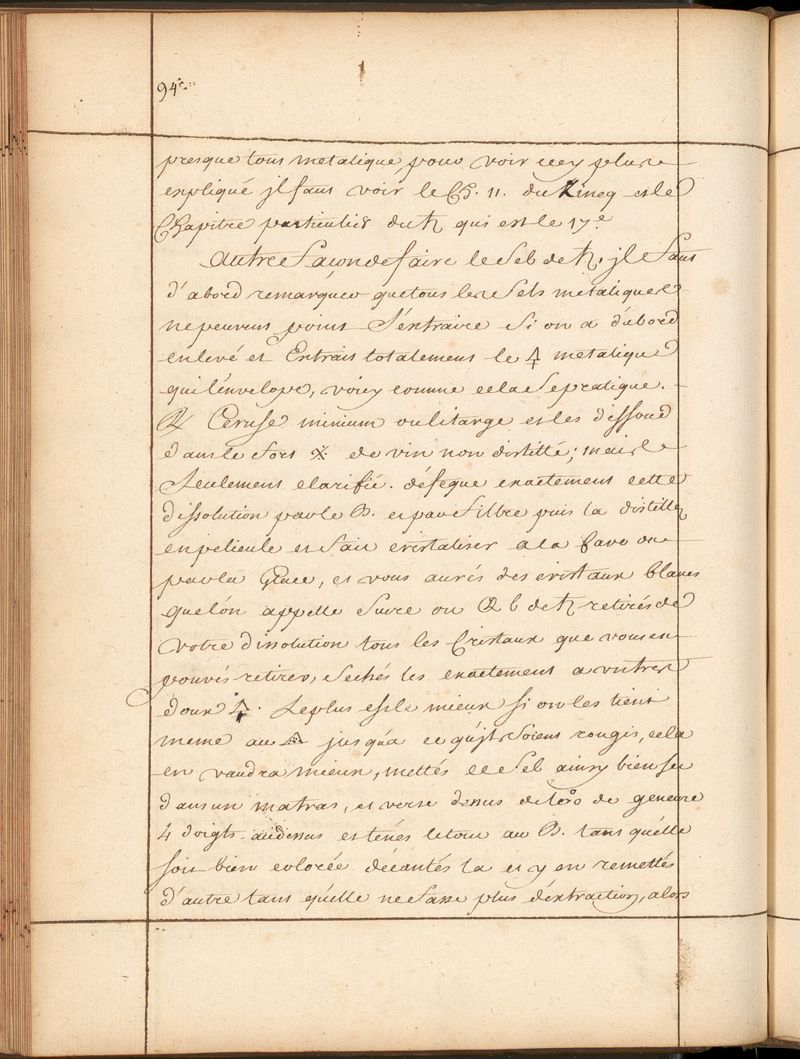 94.
presque tous metalique, pour voir cecy plus
expliqué jl faut voir le Ch. 11. du Zincq et le
Chapitre particulier du ♄ qui est le 17.e
Autre façon de faire le Sel de ♄, jl faut
d'abord remarquer que tous les Sels metaliques
ne peuvent point S'extraire Si on a d'abord
enlevé et Extrait totalement le 🜍 metalique
qui l'envelope, voicy comme cela Se pratique.
♃ Ceruse minium ou litarge et les dissoud
dans le fort 🜊 de vin non distillé; mais
Seulement clarifié. défeque exactement cette
dissolution par le B. et par filtre puis la distille
en pelicule et fait cristaliser a la Cave ou
par la Glace, et vous aurés des cristaux blancs
que lón appelle Sucre ou de ♄ retirés de
votre dissolution tous les Cristaux que vous en
pouvés retirer, Sechés les exactement a un tres
doux 🜂. Le plus est le mieux si on les tient
meme au 🜂 jusqu'a ce qu'jls Soient rougis, cela
en vaudra mieux, mettés ce Sel ainsy bien sec
dans un matras, et verse dessus de de genevre
4 doigts audessus et tenés le tout au B. tant qu'elle
soit bien colorée décantés la et y en remettés
d'autre tant qu'elle ne fasse plus d'extraction, alors